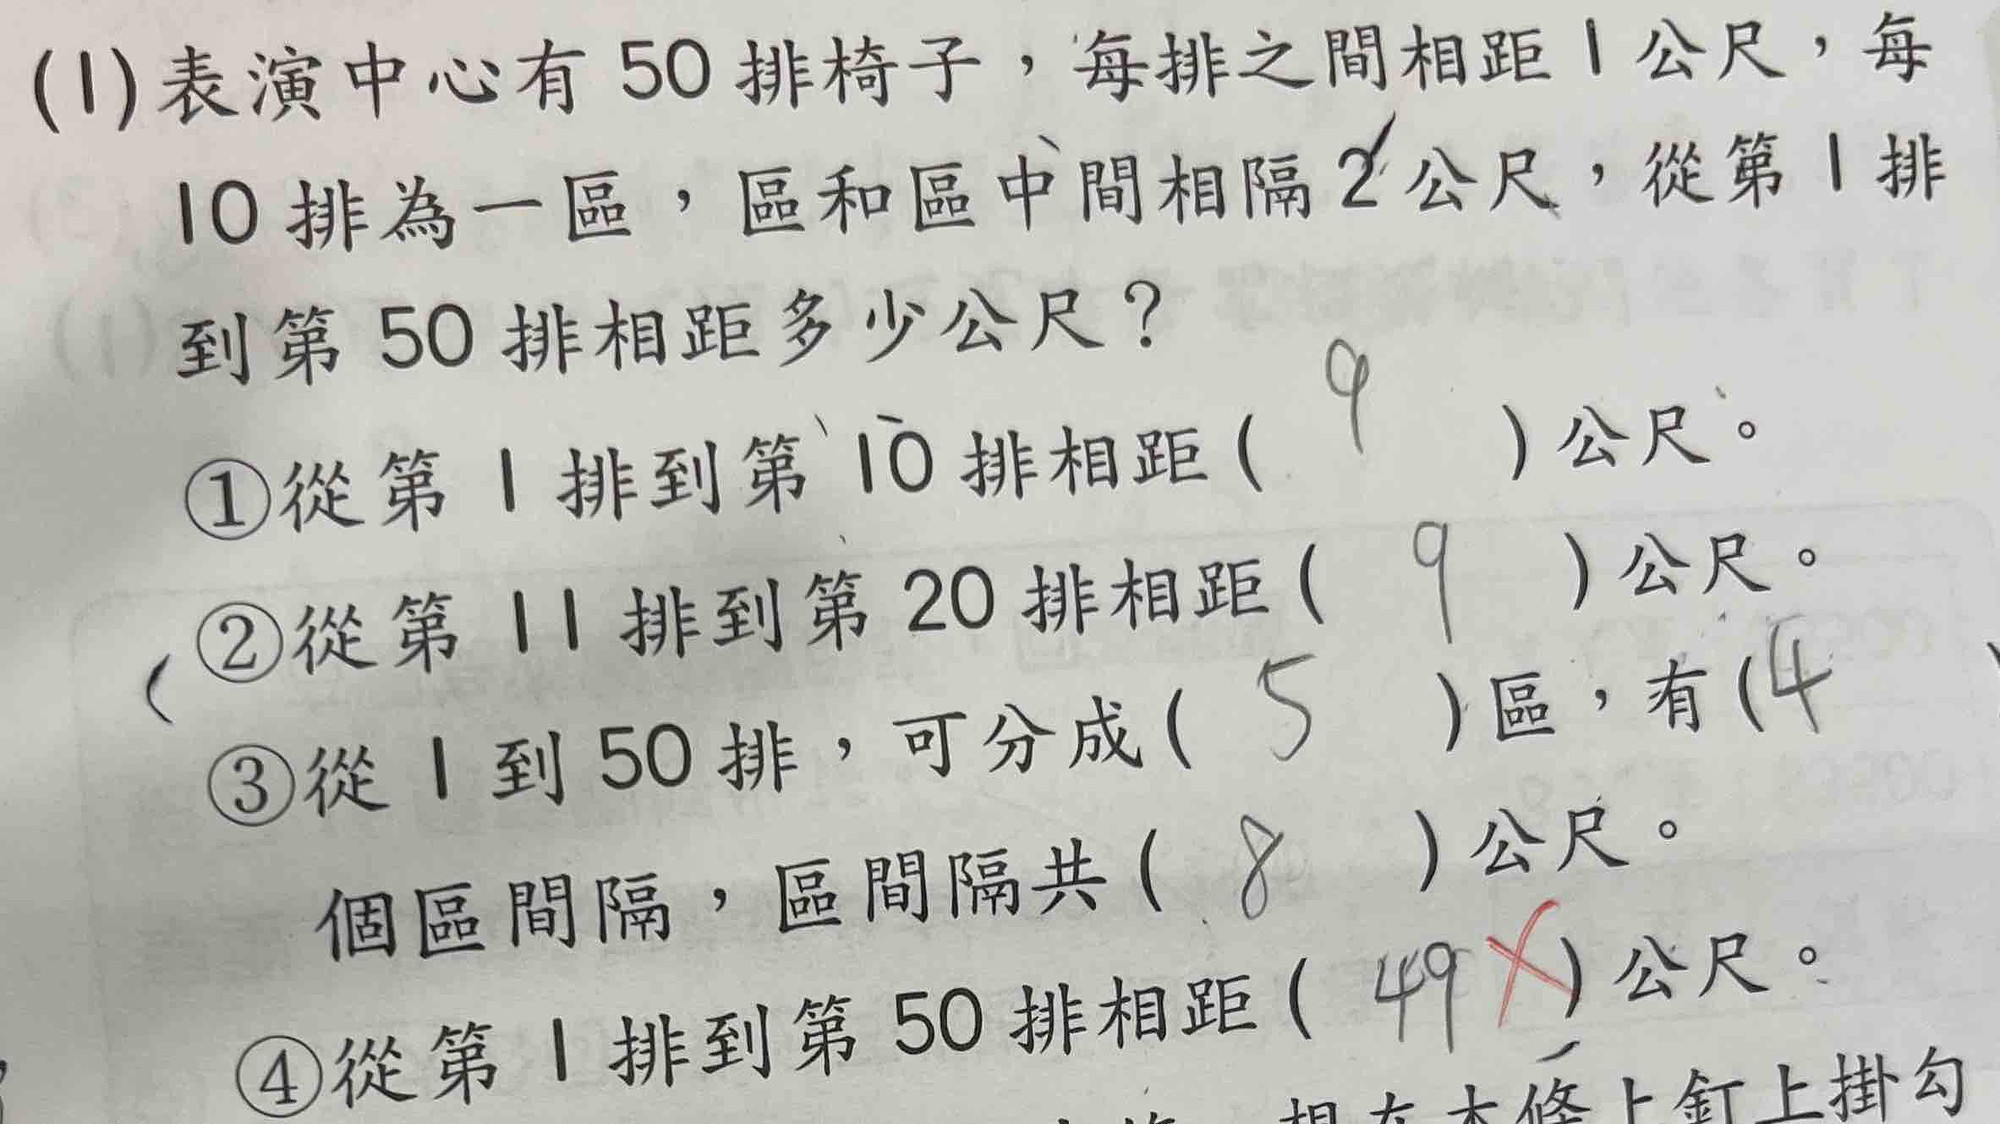 (1)表演中心有 50 排椅子，每排之間相距 1 公尺，每
10 排為一區，區和區中間相隔 2 公尺，從第 1 排
到第 50 排相距多少公尺？
①從第 1 排到第 10 排相距( 9 )公尺。
②從第 11 排到第 20 排相距( 9 )公尺。
③從 1 到 50 排，可分成( 5 )區，有(4
個區間隔，區間隔共( 8 )公尺。
④從第 1 排到第 50 排相距( 49 )公尺。
上釘上掛勾